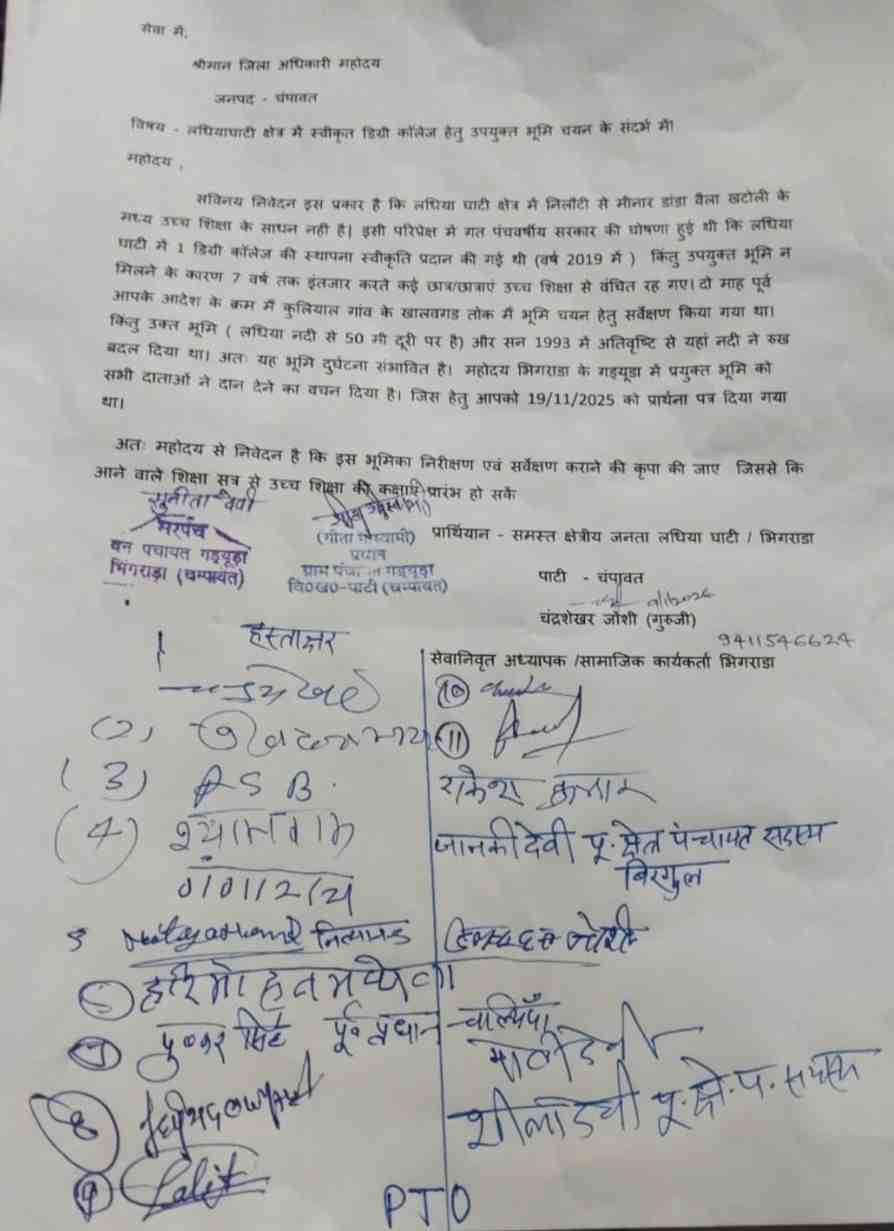 सेवा में,
श्रीमान जिला अधिकारी महोदय
जनपद - चंपावत
विषय - लधियाघाटी क्षेत्र में स्वीकृत डिग्री कॉलेज हेतु उपयुक्त भूमि चयन के संदर्भ में।
महोदय ,
सविनय निवेदन इस प्रकार है कि लधिया घाटी क्षेत्र में निलौटी से मीनार डांडा वैला खटोली के
मध्य उच्च शिक्षा के साधन नही है| इसी परिपेक्ष में गत पंचवर्षीय सरकार की घोषणा हुई थी कि लधिया
घाटी में 1 डिग्री कॉलेज की स्थापना स्वीकृति प्रदान की गई थी (वर्ष 2019 में ) किंतु उपयुक्त भूमि न
मिलने के कारण 7 वर्ष तक इंतजार करते कई छात्र/छात्राएं उच्च शिक्षा से वंचित रह गए। दो माह पूर्व
आपके आदेश के क्रम में कुलियाल गांव के खालवगड तोक में भूमि चयन हेतु सर्वेक्षण किया गया था।
किंतु उक्त भूमि ( लधिया नदी से 50 मी दूरी पर है) और सन 1993 में अतिवृष्टि से यहां नदी ने रुख
बदल दिया था। अतः यह भूमि दुर्घटना संभावित है। महोदय भिगराडा के गड्यूडा में प्रयुक्त भूमि को
सभी दाताओं ने दान देने का वचन दिया है। जिस हेतु आपको 19/11/2025 को प्रार्थना पत्र दिया गया
था।
अतः महोदय से निवेदन है कि इस भूमिका निरीक्षण एवं सर्वेक्षण कराने की कृपा की जाए जिससे कि
आने वाले शिक्षा सत्र से उच्च शिक्षा की कक्षाएं प्रारंभ हो सकें
सुनीता देवी
सरपंच
वन पंचायत गड्यूड़ा
भिंगराड़ा (चम्पावत)
(गीता गोस्वामी)
प्रधान
ग्राम पंचायत गड्यूड़ा
वि०ख०-पाटी (चम्पावत)
प्रार्थियान - समस्त क्षेत्रीय जनता लधिया घाटी / भिगराडा
पाटी - चंपावत
चंद्रशेखर जोशी (गुरुजी)
9411546624
सेवानिवृत अध्यापक /सामाजिक कार्यकर्ता भिगराडा
हस्ताक्षर
1
(2)
(3) A S B.
(4) श्यामराम
5 Nityanand नित्यानन्द
6 हरिमोहन
7 पुष्कर सिंह पूर्व प्रधान
8
9 Lalit
10
11
राकेश कुमार
जानकी देवी पू. क्षेत्र पंचायत सदस्य
बिरगुल
जोशी
शीला देवी पू. क्षे. प. सदस्य
PTO